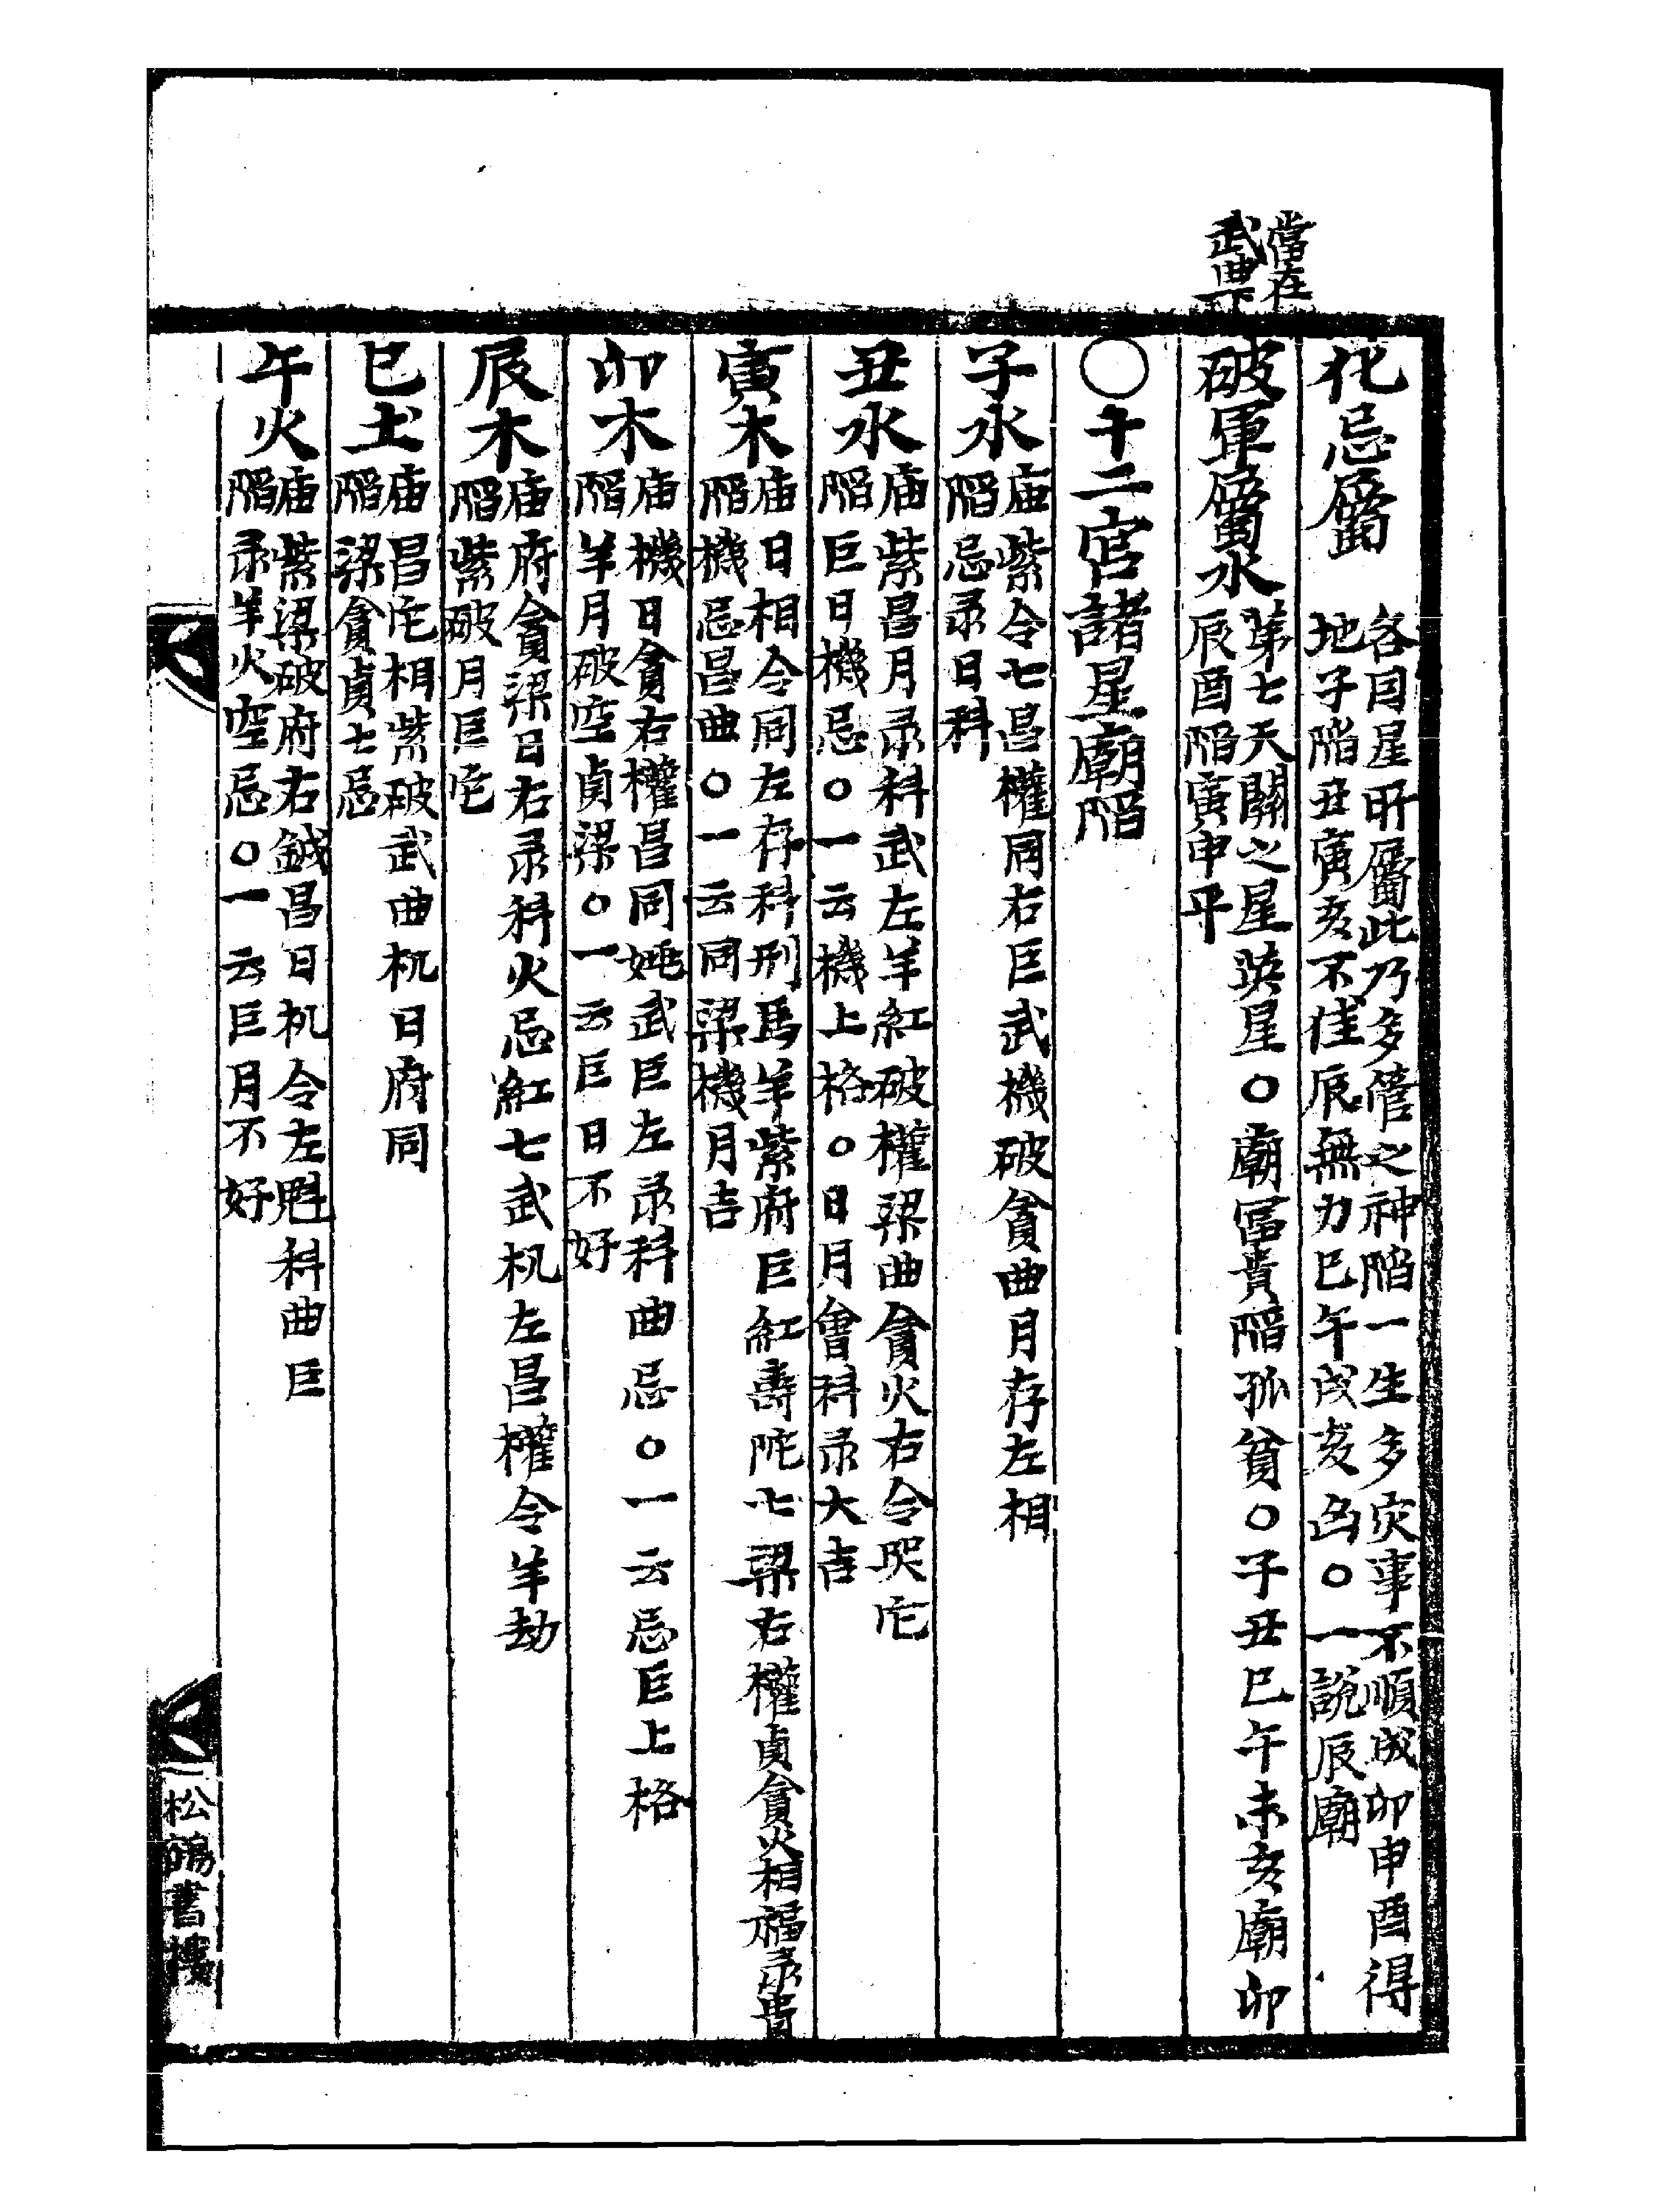 當在
武曲下
化忌屬
各目星所屬此乃多管之神陷一生多灾事不順戌卯申酉得
地子陷丑寅亥不佳辰無力巳午戌亥凶〇一說辰廟
破軍屬水
第七天關之星英星〇廟富貴陷孤貧〇子丑巳午未亥廟卯
辰酉陷寅申平
〇十二宮諸星廟陷
子水
庙紫令七昌權同右巨武機破貪曲月存左相
陷忌彔日科
丑水
庙紫昌月彔科武左羊紅破權梁曲貪火右令哭
陷巨日機忌〇一云機上格〇日月會科彔大吉
寅木
庙日相令同左存科刑馬羊紫府巨紅壽陀七梁右權貞貪火相福彔貴
陷機忌昌曲〇一云同梁機月吉
卯木
庙機日貪右權昌同武巨左彔科曲忌〇一云忌巨上格
陷羊月破空貞梁〇一云巨日不好
辰木
庙府貪梁日右彔科火忌紅七武机左昌權令羊劫
陷紫破月巨
巳土
庙昌相紫破武曲机日府同
陷梁貪貞七忌
午火
庙紫梁破府右鉞昌日机令左魁科曲巨
陷彔羊火空忌〇一云巨月不好
松鶴書樓